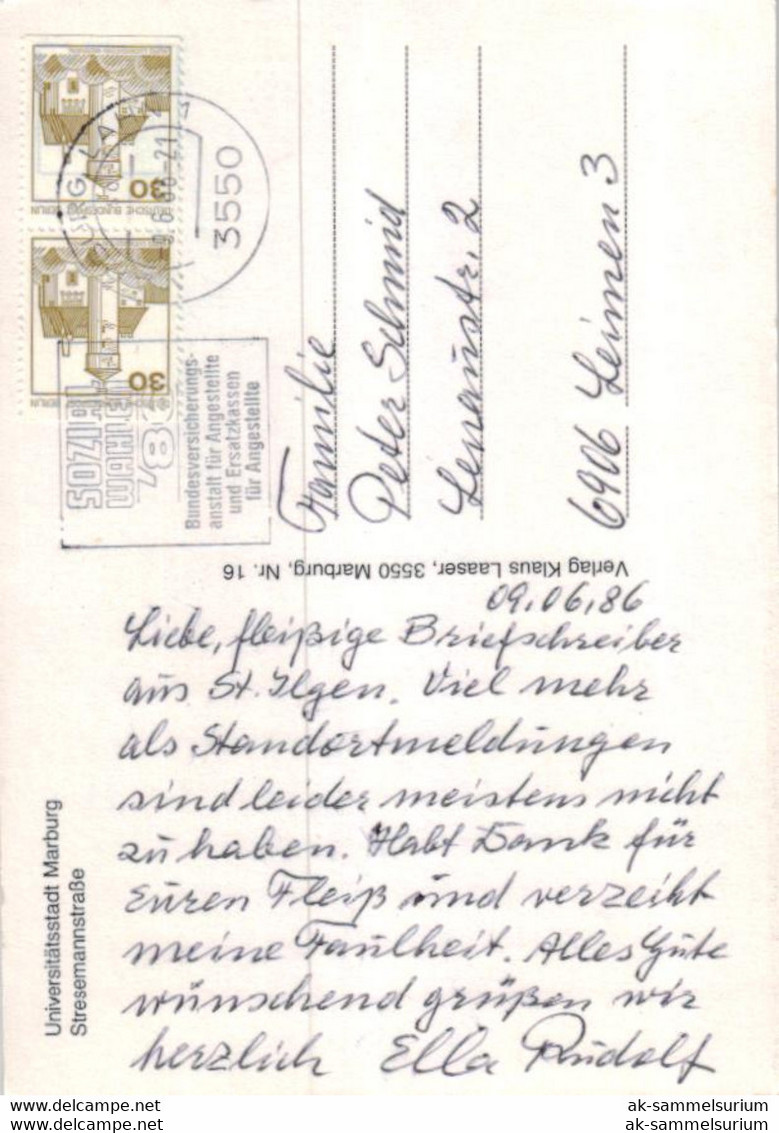 30
DEUTSCHE BUNDESPOST BERLIN
30
3550
SOZIAL
WAHLEN
86
Bundesversicherungs-
anstalt für Angestellte
und Ersatzkassen
für Angestellte
Familie
Peter Schmid
Lenaustr. 2
6906 Leimen 3
Verlag Klaus Laaser, 3550 Marburg, Nr. 16
09.06.86
Liebe, fleißige Briefschreiber
aus St. Ilgen. Viel mehr
als Standortmeldungen
sind leider meistens nicht
zu haben. Habt Dank für
Euren Fleiß und verzeiht
meine Faulheit. Alles Gute
wünschend grüßen wir
herzlich Ella Rudolf
Universitätsstadt Marburg
Stresemannstraße
ak-sammelsurium
ak-sammelsurium